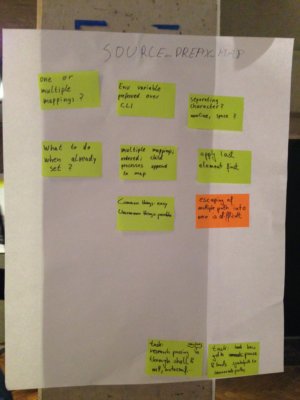 SOURCE_PREFIX_MAP
one or
multiple
mappings?
Env variable
preferred over
CLI
separating
character?
newline, space?
What to do
when already
set?
multiple mappings,
ordered; child
processes append
to map
apply last
element first
Common things easy
Uncommon things possible
escaping of
multiple path into
one is difficult
task:
research passing
through shell &
task: look how